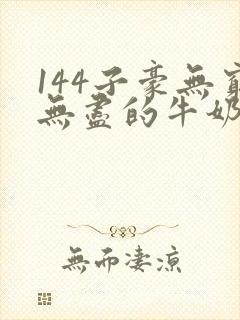 144子豪無窮
無盡的牛奶
無而淒涼